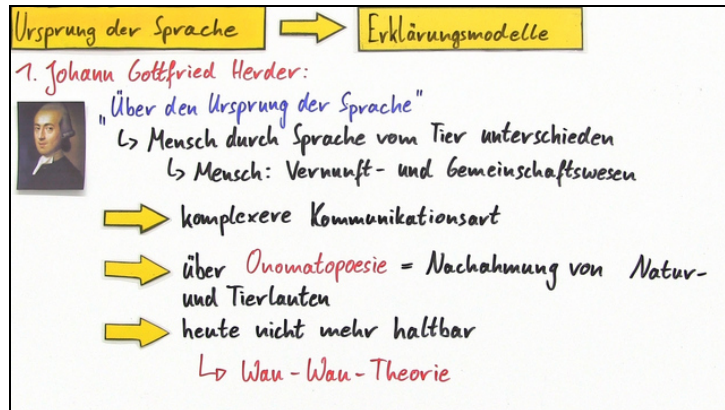 Ursprung der Sprache Erklärungsmodelle
1. Johann Gottfried Herder:
"Über den Ursprung der Sprache"
Mensch durch Sprache vom Tier unterschieden
Mensch: Vernunft- und Gemeinschaftswesen
komplexere Kommunikationsart
über Onomatopoesie = Nachahmung von Natur-
und Tierlauten
heute nicht mehr haltbar
Wau-Wau-Theorie